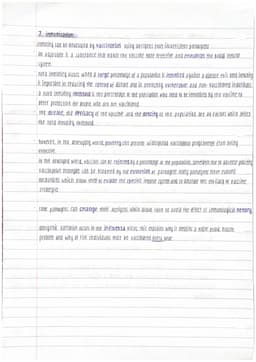 2. Immunisation
Immunity can be enhanced by vaccination using antigens from inactivated pathogens
An adjuvant is a substance that makes the vaccine more effective and enhances the body immune
system.
Herd immunity occurs when a large percentage of a population is immunised against a disease. Herd immunity
is important in reducing the spread of disease and in protecting vulnerable and non-vaccinated individuals.
A herd immunity threshold is the percentage in the population who need to be immunised by the vaccine to
offer protection for people who are not vaccinated.
The disease, the efficacy of the vaccine and the density of the population are all factors which affect
the herd immunity threshold.
However, in the developing world, poverty can prevent widespread vaccination programmes from being
executed.
In the developed world, vaccines can be rejected by a percentage of the population, percentage due to adverse publicity
Vaccination strategies can be hindered by the evolution of pathogens. Many pathogens have evolved
mechanisms which allow them to evade the specific immune system and so change the efficacy of vaccine
strategies
Some pathogens can change their antigens which allows them to avoid the effect of immunological memory
Antigenic variation occurs in the influenza virus. This explains why it remains a major public health
problem and why at risk individuals must be vaccinated every year